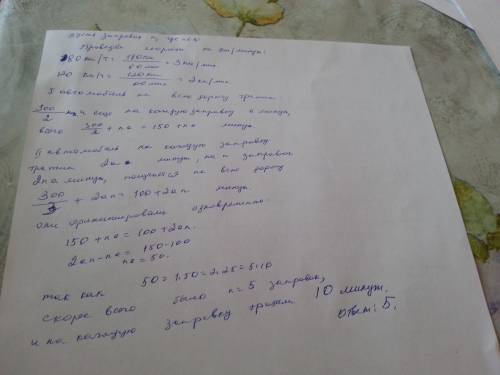 Пусть заправок n, целое
Переведём скорость на км/минуты:
180 км/ч = 180км/60мин = 3км/мин
120 км/ч = 120км/60мин = 2км/мин
I автомобиль на всю дорогу тратит
300/2 и еще на каждую заправку a минут,
всего 300/2 + na = 150 + na минут
II автомобиль на каждую заправку
тратит 2a минут, на n заправок
2na минут, получается на всю дорогу
300/3 + 2an = 100 + 2an минут
они финишировали одновременно.
150 + na = 100 + 2an.
2an - na = 150 - 100
na = 50.
так как 50 = 1·50 = 2·25 = 5·10
скорее всего было n = 5 заправок,
и на каждую заправку тратит 10 минут.
ответ: 5.